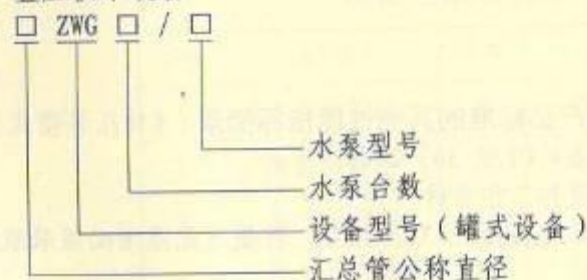 □ ZWG □ / □
水泵型号
水泵台数
设备型号(罐式设备)
汇总管公称直径